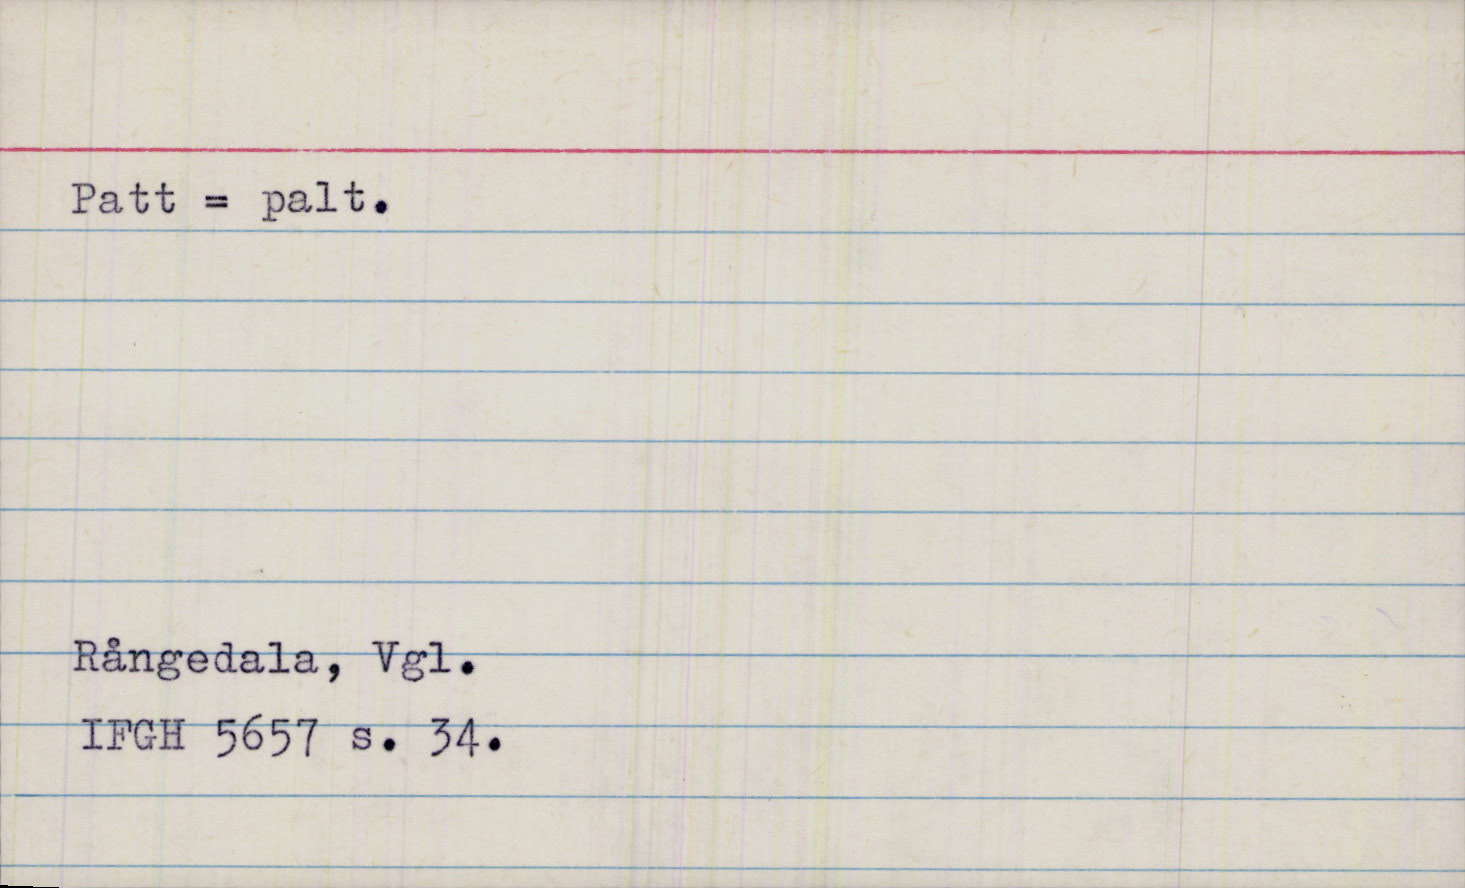 Patt = palt.
Rångedala, Vgl.
IFGH 5657 s. 34.